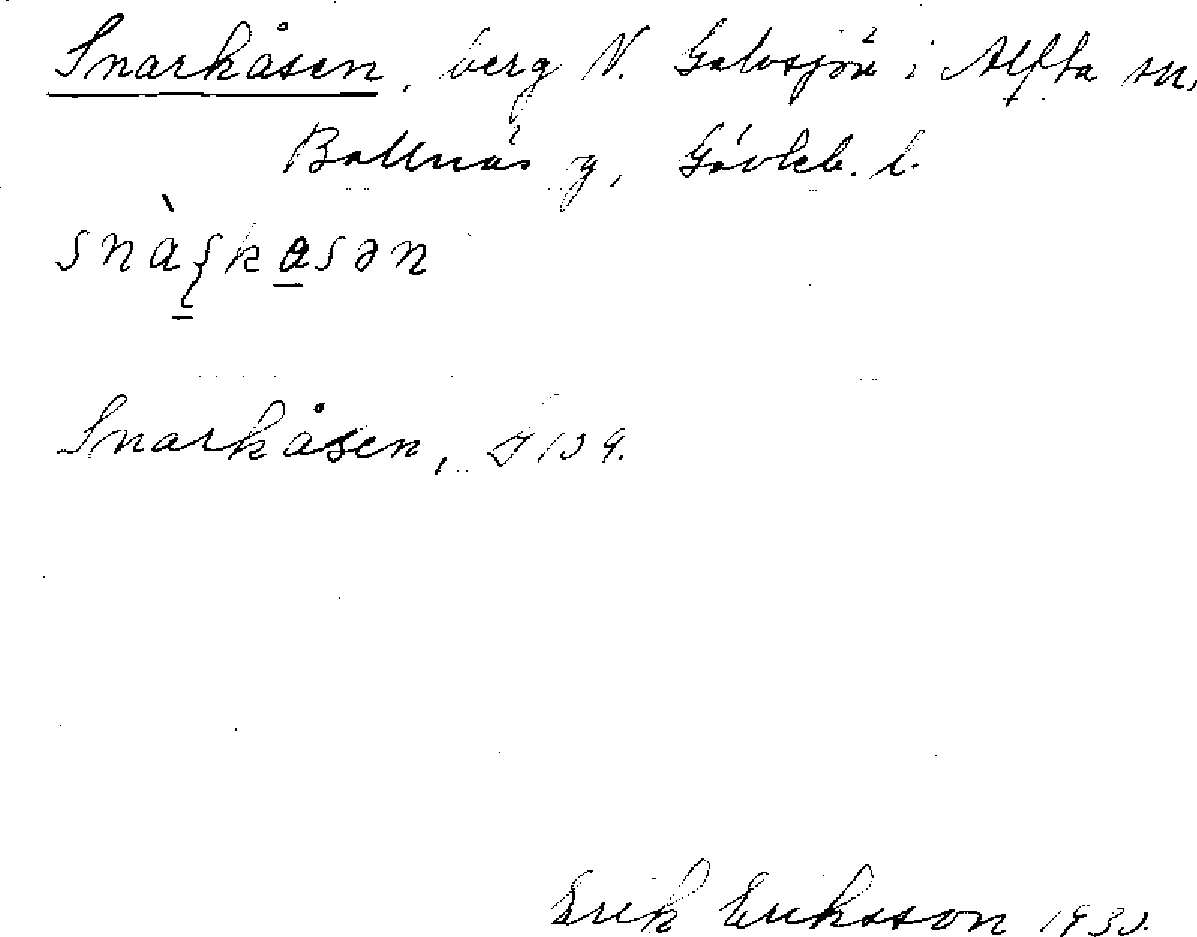 Snarkåsen, berg N. Galvsjön i Alfta sn,
Bollnäs g, Gävleb. l.
snàrkasən
Snarkåsen,
Erik Eriksson 193